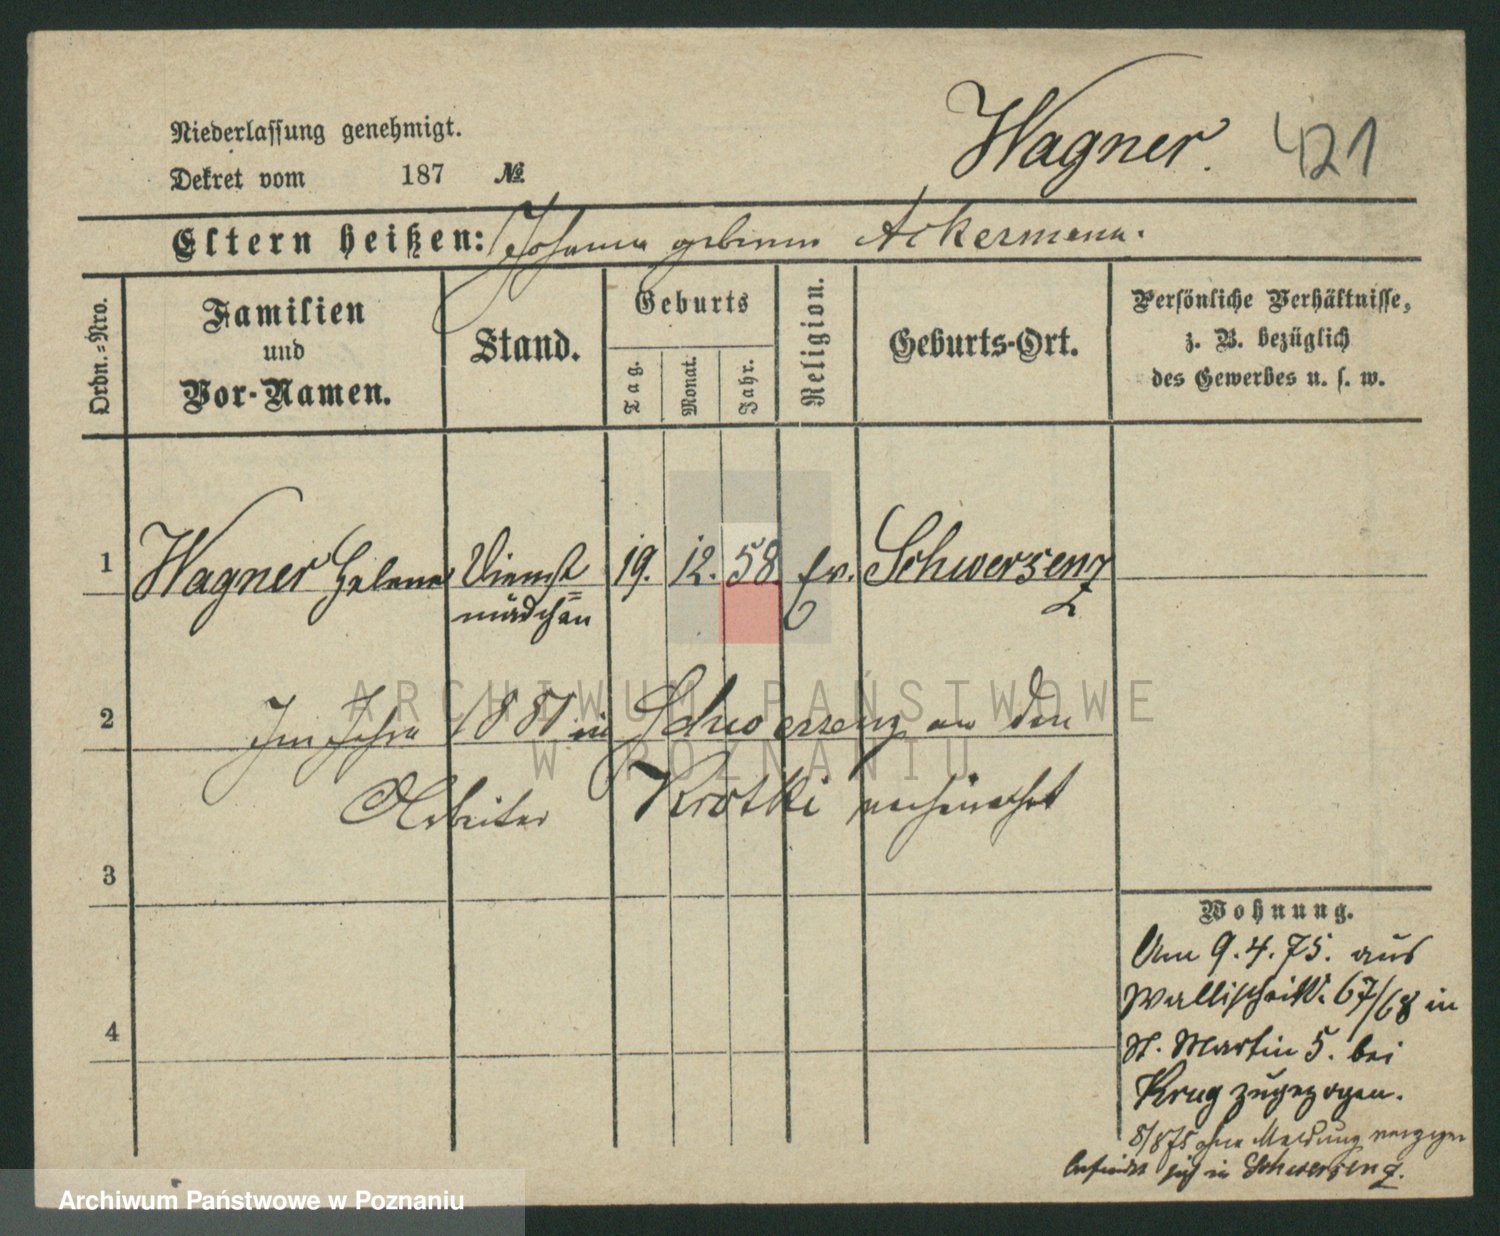 Wagner. 421
Niederlassung genehmigt.
Dekret vom 187 №
Eltern heißen: Johanna geborene Ackermann.
Ordn.-Nro.
Familien
und
Vor-Namen.
Stand.
Geburts
Tag.
Monat.
Jahr.
Religion.
Geburts-Ort.
Persönliche Verhältnisse,
z. B. bezüglich
des Gewerbes u. s. w.
1 Wagner Helene Dienst= 19. 12. 58. Ev. Schwersenz
mädchen
ARCHIWUM PAŃSTWOWE
W POZNANIU
2 Im Jahre 1881 in Schwersenz an den
Arbeiter Krotki verheirathet
3
4
Wohnung.
Am 9.4.75. aus
Wallischei 67/68 in
St. Martin 5. bei
Krug zugezogen.
8/8 75 ohne Meldung verzogen
befindet sich in Schwersenz.
Archiwum Państwowe w Poznaniu